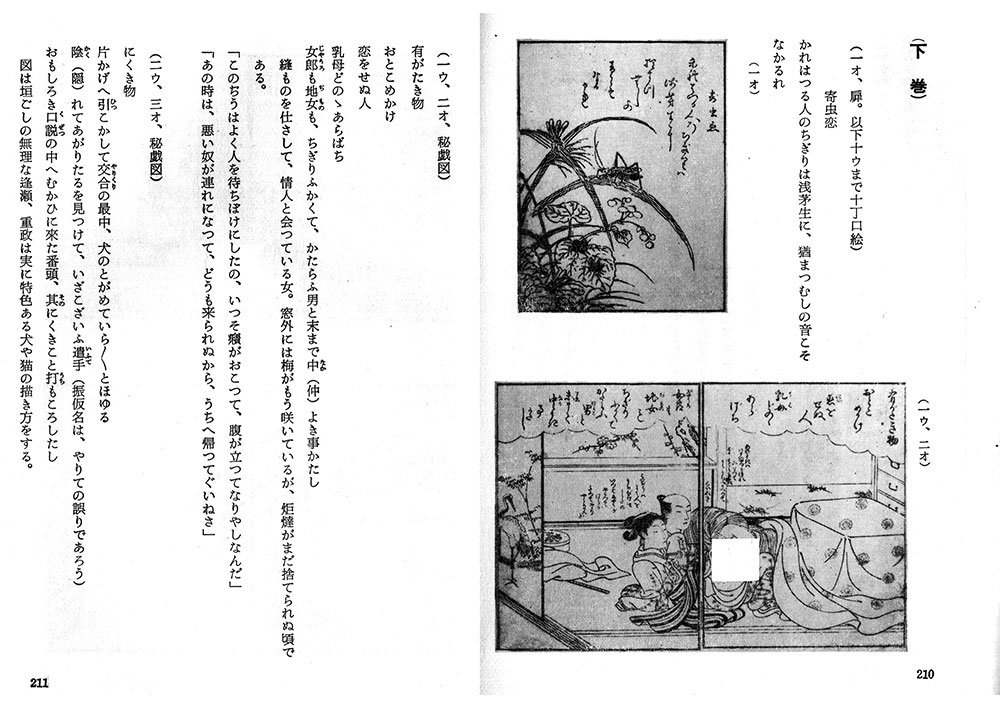 (下 巻)
(一オ、扉。以下十ウまで十丁口絵)
寄虫恋
かれはつる人のちぎりは浅茅生に、猶まつむしの音こそ
なかるれ
(一オ)
(一ウ、二オ)
210
(一ウ、二オ、秘戯図)
有がたき物
おとこめかけ
恋をせぬ人
乳母どのゝあらばち
女郎も地女も、ちぎりふかくて、かたらふ男と末まで中(仲)よき事かたし
縫ものを仕さして、情人と会つている女。窓外には梅がもう咲いているが、炬燵がまだ捨てられぬ頃で
ある。
「このぢうはよく人を待ちぼけにしたの、いつそ癪がおこつて、腹が立つてなりやしなんだ」
「あの時は、悪い奴が連れになつて、どうも来られぬから、うちへ帰つてぐいねさ」
(二ウ、三オ、秘戯図)
にくき物
片かげへ引こかして交合の最中、犬のとがめていら〱とほゆる
陰(隠)れてあがりたるを見つけて、いざこざいふ遣手(振仮名は、やりての誤りであろう)
おもしろき口説の中へむかひに來た番頭、其にくきこと打もころしたし
図は垣ごしの無理な逢瀬、重政は実に特色ある犬や猫の描き方をする。
211